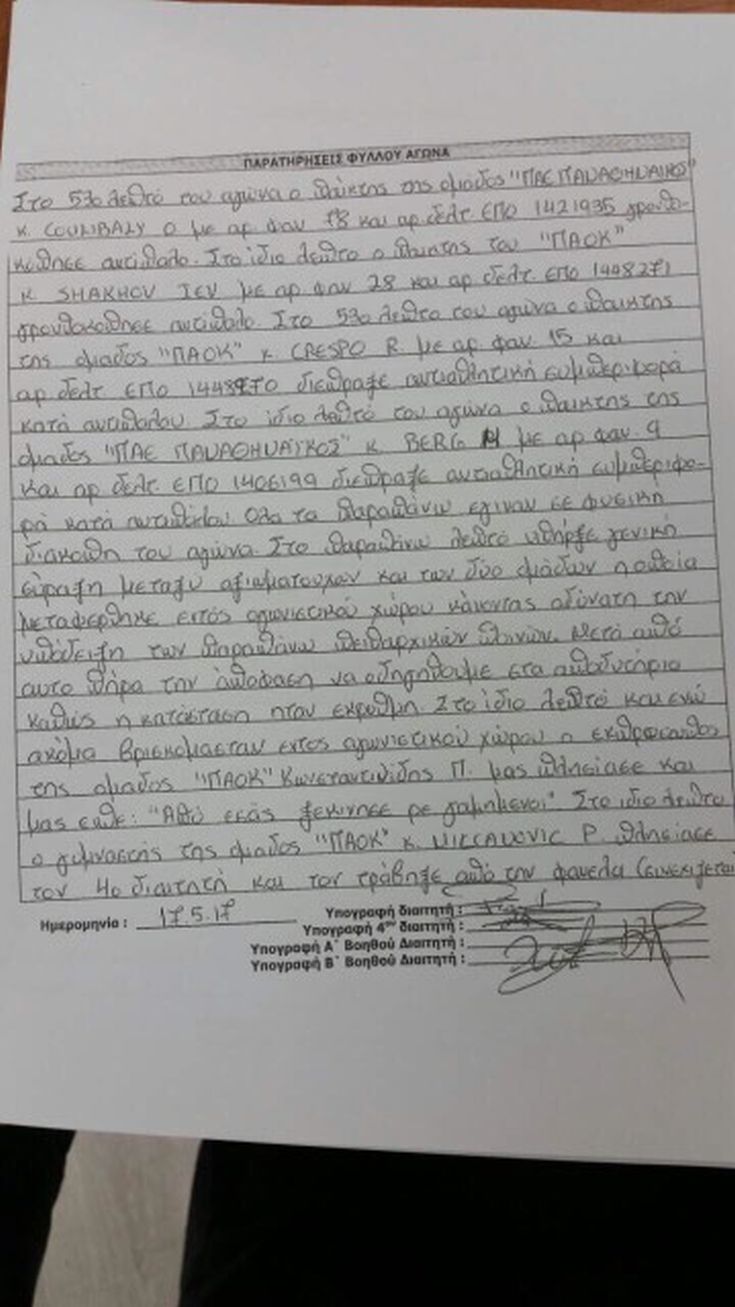 ΠΑΡΑΤΗΡΗΣΕΙΣ ΦΥΛΛΟΥ ΑΓΩΝΑ
Στο 53ο λεπτό του αγώνα ο παίκτης της ομάδος "ΠΑΕ ΠΑΝΑΘΗΝΑΪΚΟΣ"
κ. COULIBALY O με αρ. φαν 78 και αρ. δελτ. ΕΠΟ 1421935 γρονθο-
κόπησε αντίπαλο. Στο ίδιο λεπτό ο παίκτης του "ΠΑΟΚ"
κ SHAKHOV ΙΕV με αρ φαν 28 και αρ δελτ. ΕΠΟ 1448271
γρονθοκόπησε αντίπαλο. Στο 53ο λεπτό του αγώνα ο παίκτης
της ομάδος "ΠΑΟΚ" κ. CRESPO R. με αρ. φαν. 15 και
αρ. δελτ. ΕΠΟ διέπραξε αντιαθλητική συμπεριφορά
κατά αντιπάλου. Στο ίδιο λεπτό του αγώνα ο παίκτης της
ομάδος "ΠΑΕ ΠΑΝΑΘΗΝΑΪΚΟΣ" κ. BERG με αρ φαν. 9
και αρ. δελτ. ΕΠΟ 1406199 διέπραξε αντιαθλητική συμπεριφο-
ρά κατά αντιπάλου. Όλα τα παραπάνω έγιναν σε φυσική
διακοπή του αγώνα. Στο παραπάνω λεπτό υπήρξε γενική
σύρραξη μεταξύ αξιωματούχων και των δύο ομάδων η οποία
μεταφέρθηκε εντός αγωνιστικού χώρου κάνοντας αδύνατη την
υπόδειξη των παραπάνω πειθαρχικών ποινών. Μετά από
αυτο πήρα την απόφαση να οδηγηθούμε στα αποδυτήρια
καθώς η κατάσταση ήταν έκρυθμη. Στο ίδιο λεπτό και ενώ
ακόμα βρισκόμασταν εντός αγωνιστικού χώρου ο εκπρόσωπος
της ομάδος "ΠΑΟΚ" Κωνσταντινίδης Π. μας πλησίασε και
μας είπε: "Από εσάς ξεκίνησε ρε γαμημένοι" Στο ίδιο λεπτό
ο γυμναστής της ομάδος "ΠΑΟΚ" κ. P. πλησίασε
τον 4ο διαιτητή και τον τράβηξε από την φανέλα (συνεχίζεται
Ημερομηνία : 17.5.17
Υπογραφή διαιτητή :
Υπογραφή 4ου διαιτητή :
Υπογραφή Α΄ Βοηθού Διαιτητή :
Υπογραφή Β΄ Βοηθού Διαιτητή :